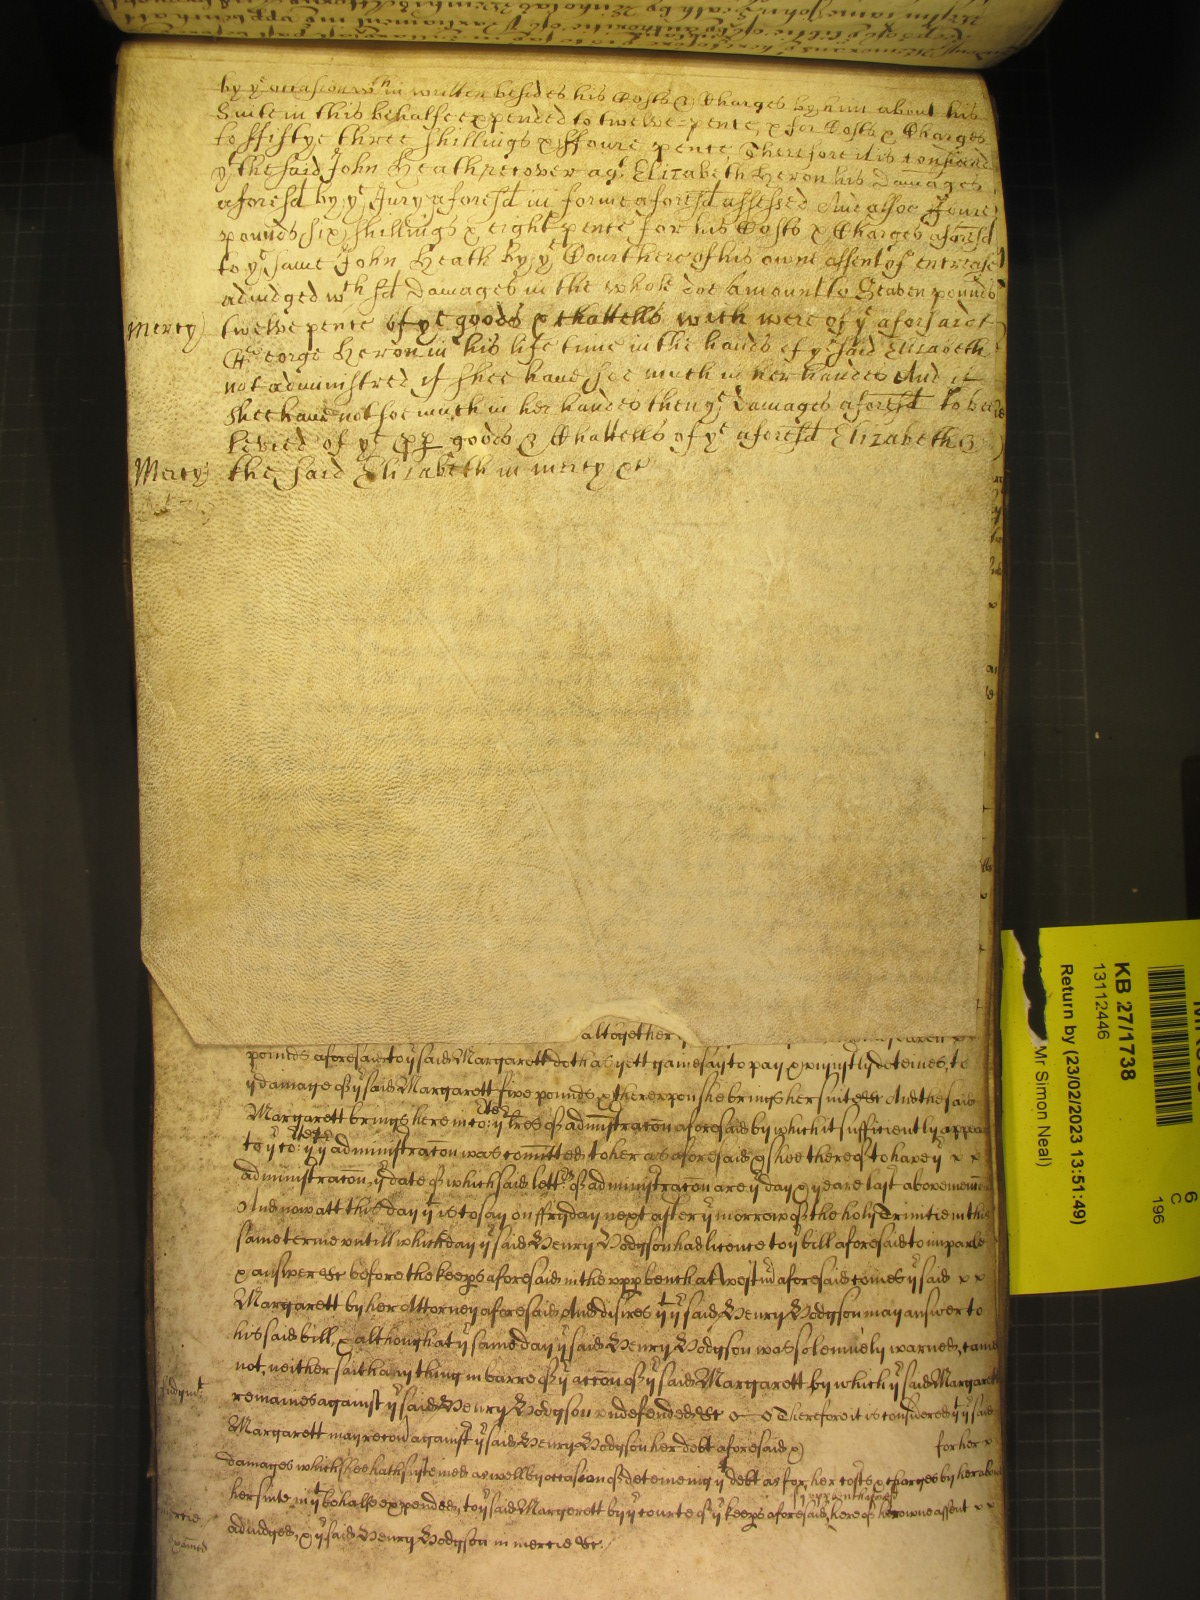 by yͤ occasion wᵗʰin written besides his Costs & Charges by him about his
Suite in this behalfe expended to twelve-pence, & for Costs & Charges
to ffiftye three shillings & ffoure pence, Therefore it is considered
yᵗ the said John Heath recover agᵗ Elizabeth Heron his Damages
aforesd by yͤ Jury aforesd in forme aforesd assessed And alsoe Foure
pounds six shillings & eight pence for his Costs & Charges aforesd
to yͤ same John Heath by yͤ Court here of his owne assent of encrease
adiudged wᶜʰ sd Damages in the whole doe amount to Seaven pounds
Mercy twelve pence of yͤ goods & chattells wich were of yͤ aforsaid
George Heron in his life time in the hands of yͤ said Elizabeth
not administred if shee have soe much in her handes And if
shee have not soe much in her handes then yͤ Damages aforesd to bee
levied of yͤ pp goods & Chattells of yͤ aforesd Elizabeth &
Mercy the said Elizabeth in mercy &c
altogether
pounds aforesaid to yͤ said Margarett doth as yett gainesay to pay & uniustly deteines, to
yͤ damage of yͤ said Margarett five pounds, & thereupon she brings her suite &c And the said
Margarett brings here into Court yͤ lres of administracon aforesaid by which it sufficiently appears
to yͤ Court yᵗ yͤ administracon was comitted to her as aforesaid, & shee thereof to have yͤ x x
administracon, yͤ date of which said letters of administracon are yͤ day & yeare last abovemenconed
And now att this day yᵗ is to say on ffryday next after yͤ morrow of the holy Trinitie in this
same terme untill which day yͤ said Henry Hodgson had licence to yͤ bill aforesaid to imparle
& answere &c before the keeps aforesaid in the upp bench at Westmʳ aforesaid comes yͤ said x x
Margarett by her Attorney aforesaid And disires yᵗ yͤ said Henry Hodgson may answer to
his said bill, & although at yͤ same day yͤ said Henry Hodgson was solemnely warned, came
not, neither saith any thing in barre of yͤ accon of yͤ said Margarett by which yͤ said Margarett
Judgmᵗ remaines against yͤ said Henry Hodgson undefended &c Therefore it is considered yᵗ yͤ said
Margarett may recover against yͤ said Henry Hodgson her debt aforesaid & for her x
damages which shee hath susteined as well by occasion of deteineing yͤ debt as for her costs & charges by her about
her suite in yᵗ behalfe expended, to yͤ said Margarett by yͤ courte of yͤ keeps aforesaid, here of her owne assent x x
adiudged, & yͤ said Henry Hodgson in mercie &c.
KB 27/1738
13112446
Return by (23/02/2023 13:51:49)
Mr Simon Neal)
6
C
196